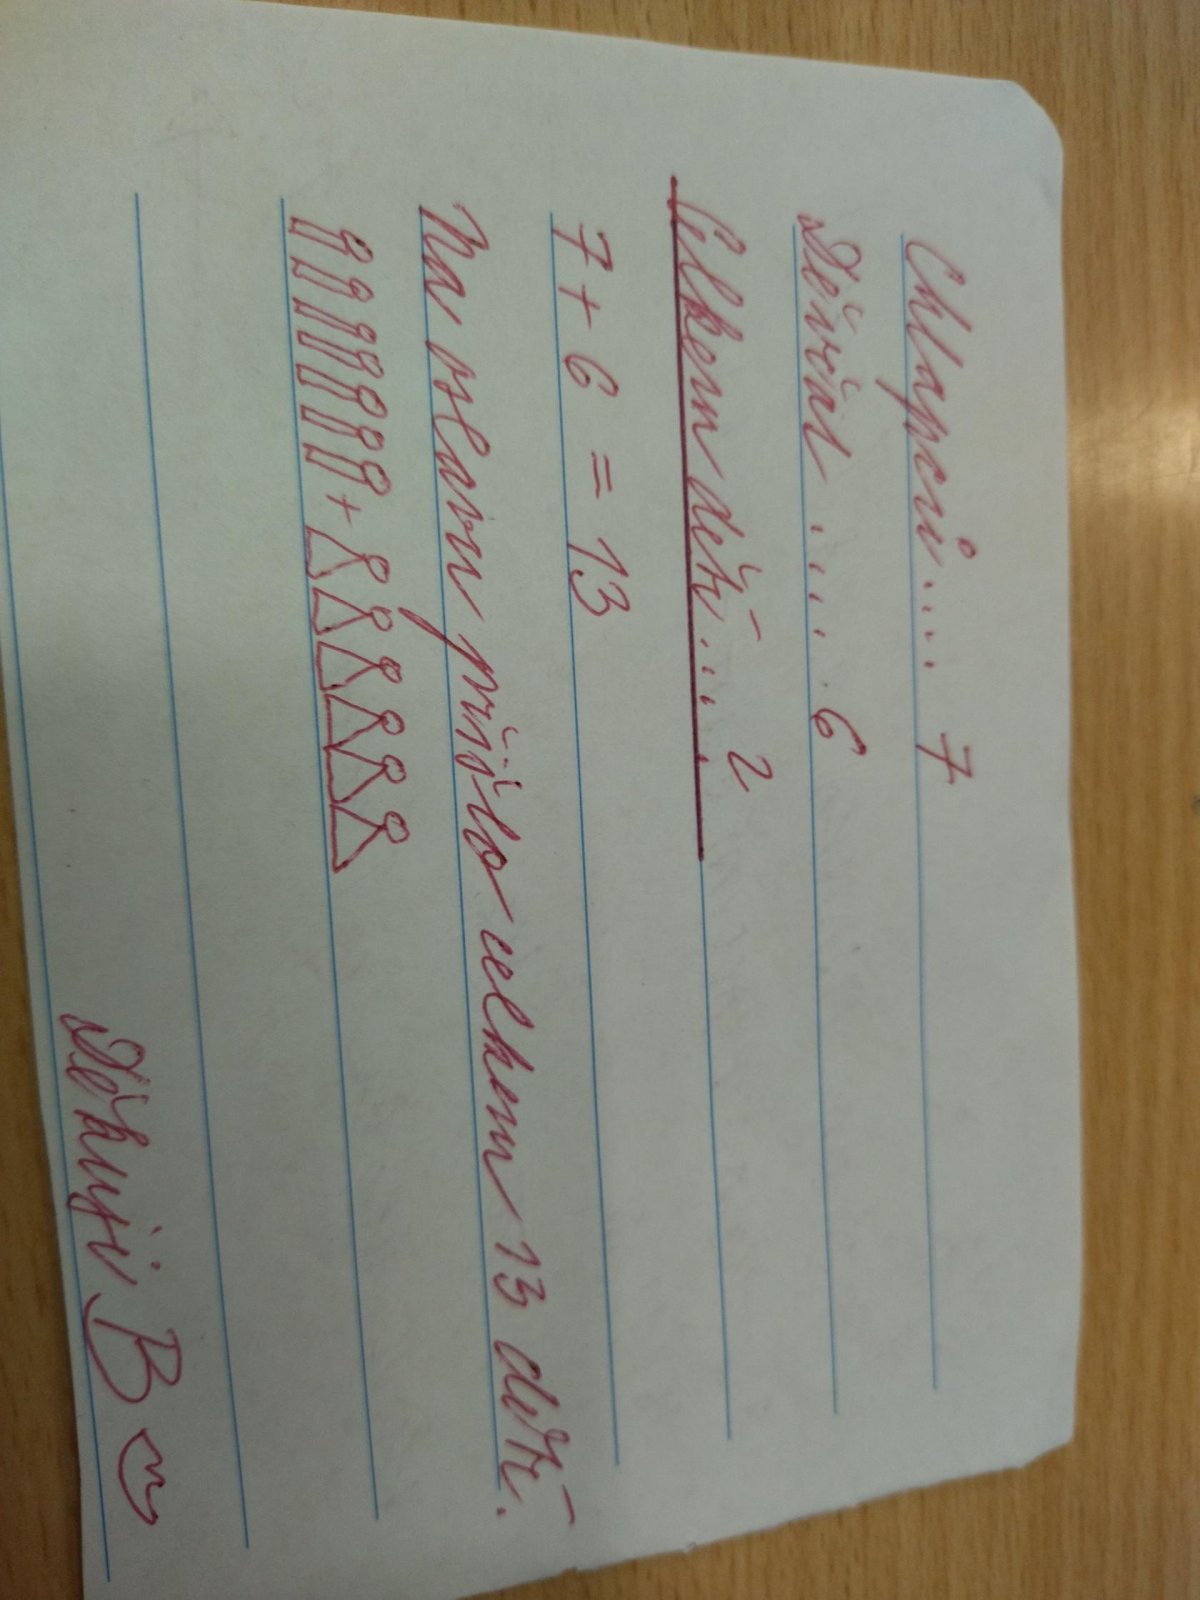 Chlapci.... 7
Děvčat .... 6
Celkem dětí.... ?
7 + 6 = 13
Na oslavu přišlo celkem 13 dětí.
+
Děkuji B